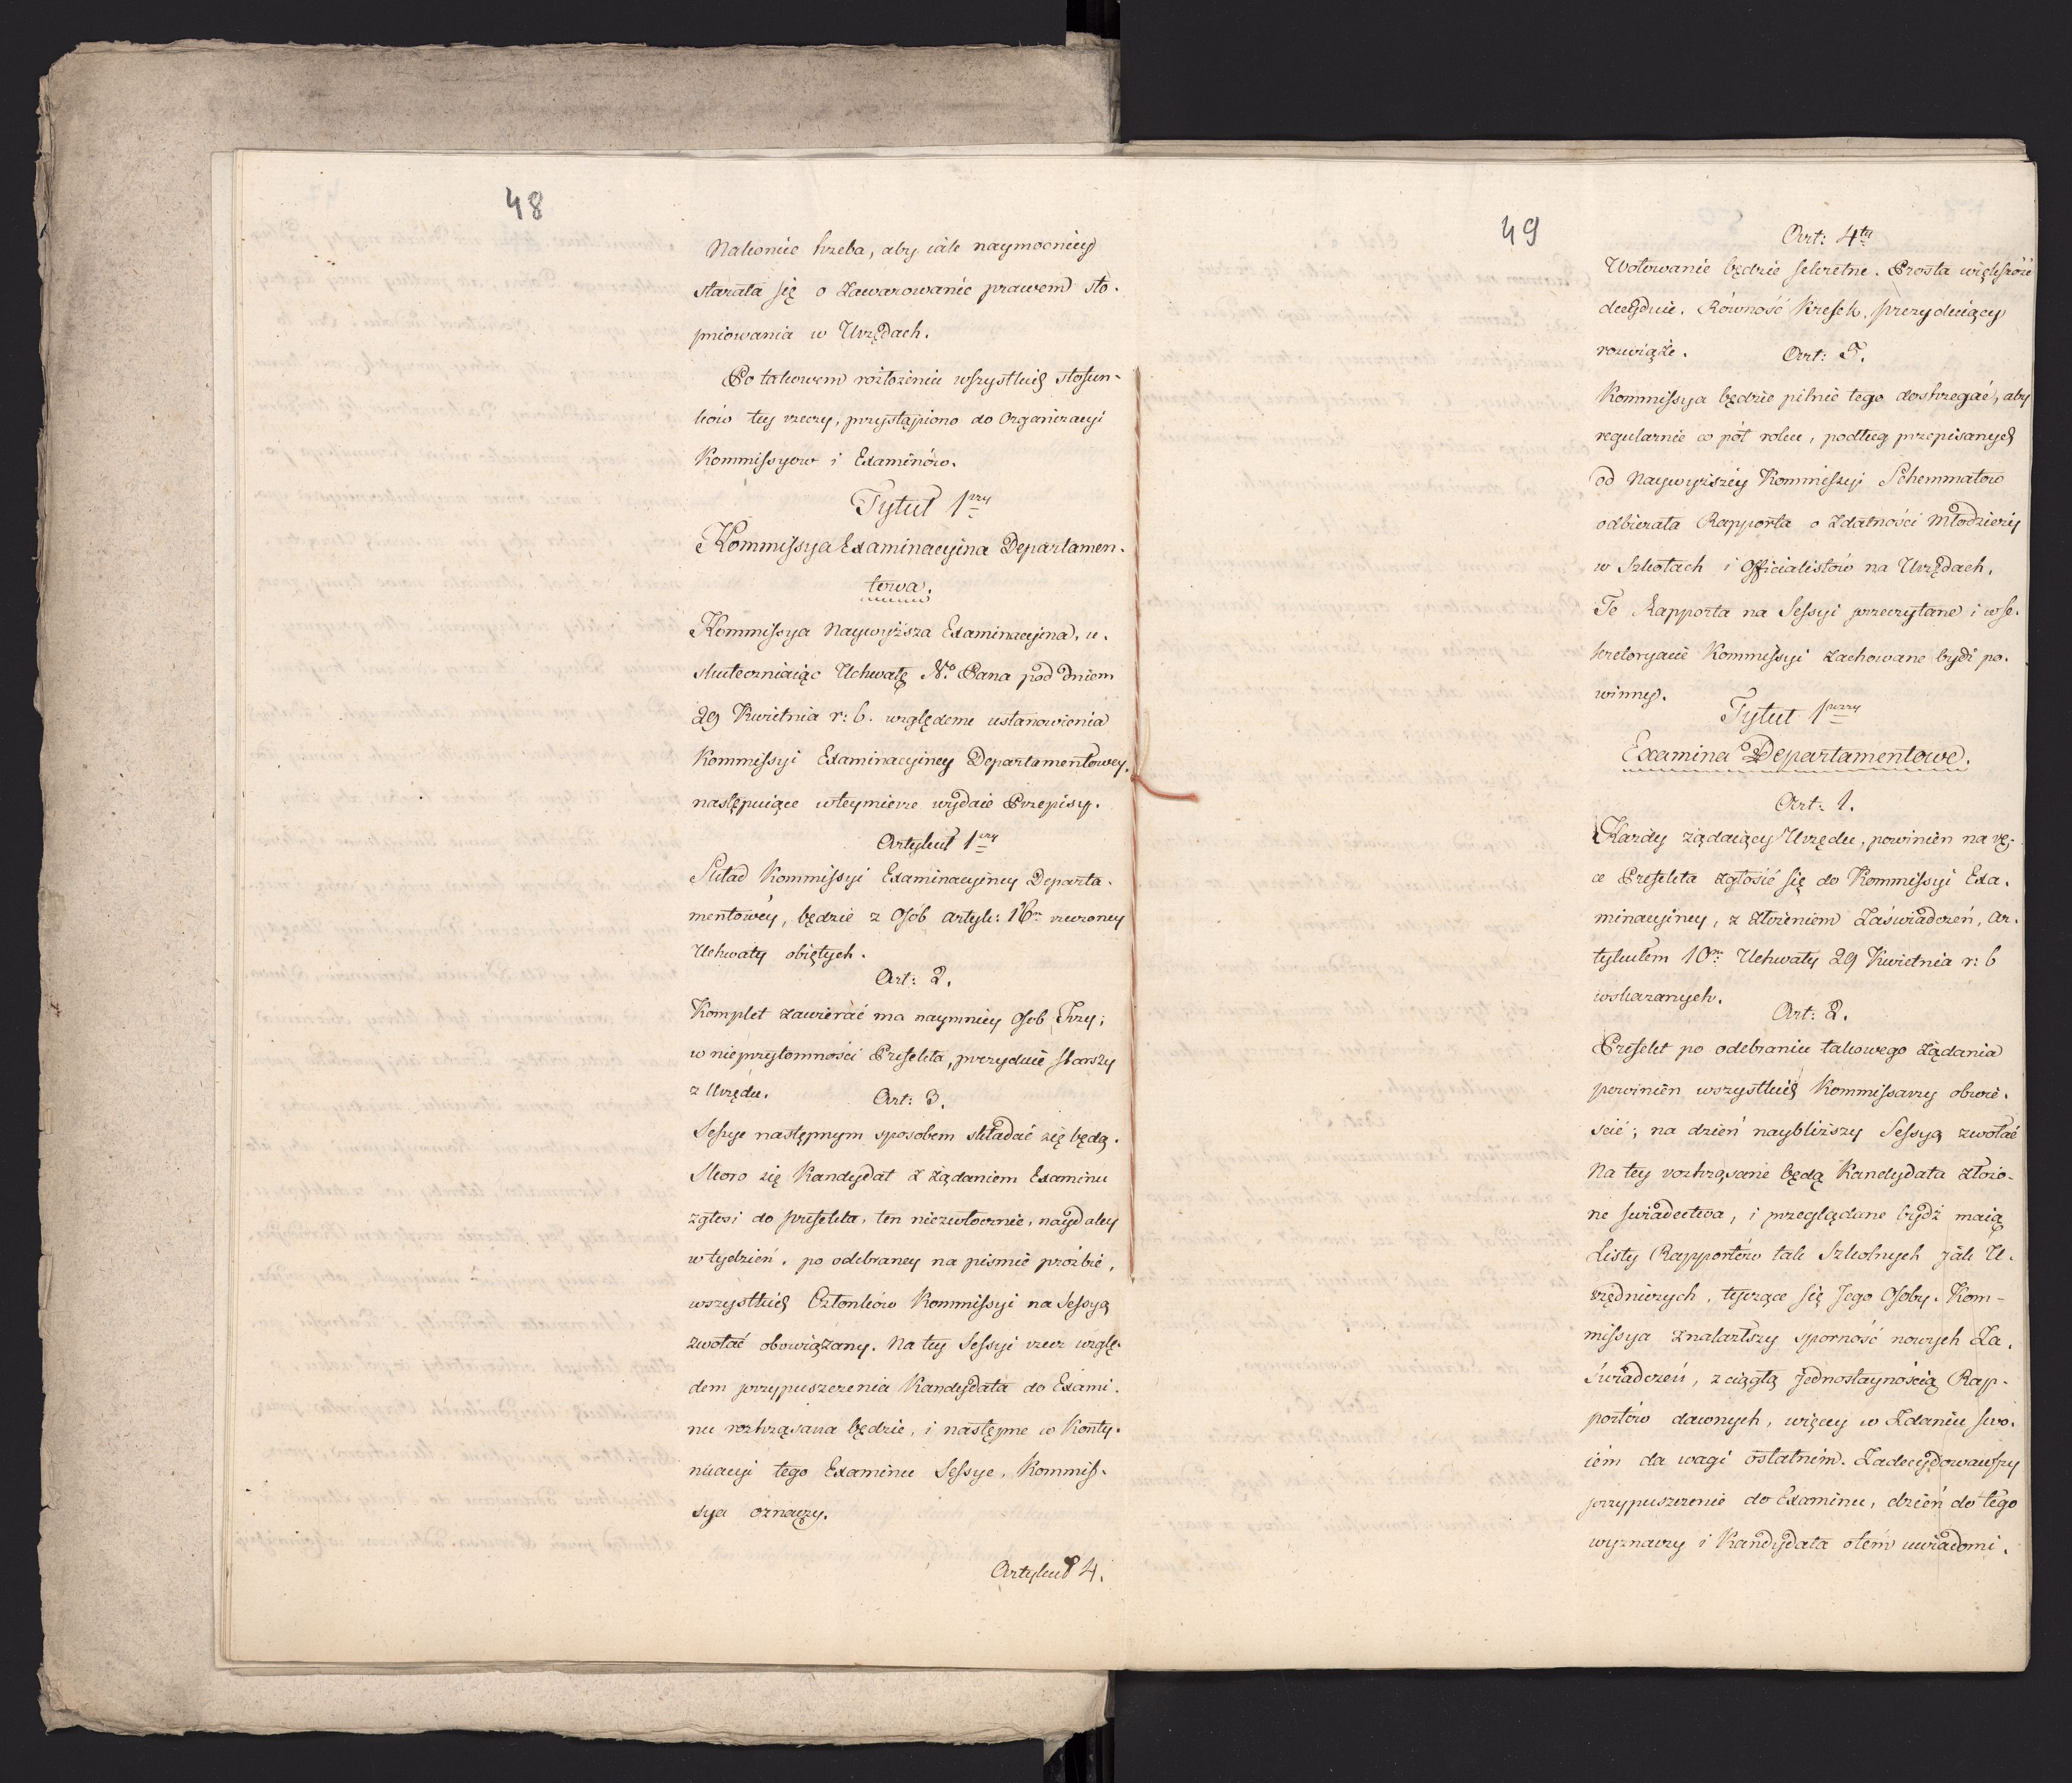 48
Nakoniec trzeba, aby iak naymocniey
starała się o zawarowanie prawem sto-
pniowania w Urzędach.
Po takowem rozłożeniu wszystkich stosun-
ków tey rzeczy, przystąpiono do Organizacyi
Kommissyow i Examinów.
Tytuł 1wszy
Kommissya Examinacyina Departamen-
towa.
Kommissya Naywyższa Examinacyina, u-
skuteczniaiąc Uchwałę N. Pana pod Dniem
29 Kwietnia r: b. względem ustanowienia
Kommissyi Examinacyiney Departamentowey,
następuiące w tey mierze wydaie Przepisy.
Artykuł 1wszy
Skład Kommissyi Examinacyiney Departa-
mentowéy, będzie z Osób artyk: 16m rzeczoney
Uchwały obiętych.
Art: 2.
Komplet zawierać ma naymniey Osob Trzy;
w nieprzytomności Prefekta, prezyduie starszy
z Urzędu.
Art: 3.
Sessye następnym sposobem składać się będą.
Skoro się Kandydat z żądaniem Examinu
zgłosi do prefekta, ten niezwłocznie, naydaley
w tydzień, po odebraney na pismie prożbie,
wszystkich Członków Kommissyi na Sessyą
zwołać obowiązany. Na tey Sessyi rzecz wzglę-
dem przypuszczenia Kandydata do Exami-
nu roztrząsana będzie, i następne w Konty-
nuacyi tego Examinu Sessye, Kommis-
sya oznaczy.
Artykuł 4.
49
Art: 4ty
Wotowanie będzie sekretne. Prosta większość
decyduie. Równość kresek, prezyduiący
rozwiąże.
Art: 5.
Kommissya będzie pilnie tego dostrzegać, aby
regularnie co pół roku, podług przepisanych
od Naywyższey Kommissyi Schemmatow
odbierała Rapporta o zdatności Młodzieży
w Szkołach i Officialistów na Urzędach.
Te Rapporta na Sessyi przeczytane i w Se-
kretaryacie Kommissyi zachowane bydź po-
winny.
Tytuł 1wszy
Examina Departamentowe.
Art: 1.
Każdy żądaiący Urzędu, powinien na rę-
ce Prefekta zgłosić się do Kommissyi Exa-
minacyiney, z złożeniem Zaświadczeń, Ar-
tykułem 10m Uchwały 29 Kwietnia r: b
wskazanych.
Art: 2.
Prefekt po odebraniu takowego żądania
powinien wszystkich Kommissarzy obwie-
ścić; na dzień naybliższy Sessyą zwołać
Na tey roztrząsane będą Kandydata złożo-
ne świadectwa, i przeglądane bydź maią
Listy Rapportów tak Szkolnych jak U-
rzędniczych, tyczące się Jego Osoby. Kom-
missya znalazłszy sporność nowych Za-
świadczeń, z ciągłą jednostaynością Rap-
portów dawnych, więcey w Zdaniu swo-
iém da wagi ostatnim. Zadecydowawszy
przypuszczenie do Examinu, dzień do tego
wyznaczy i Kandydata o tém uwiadomi.